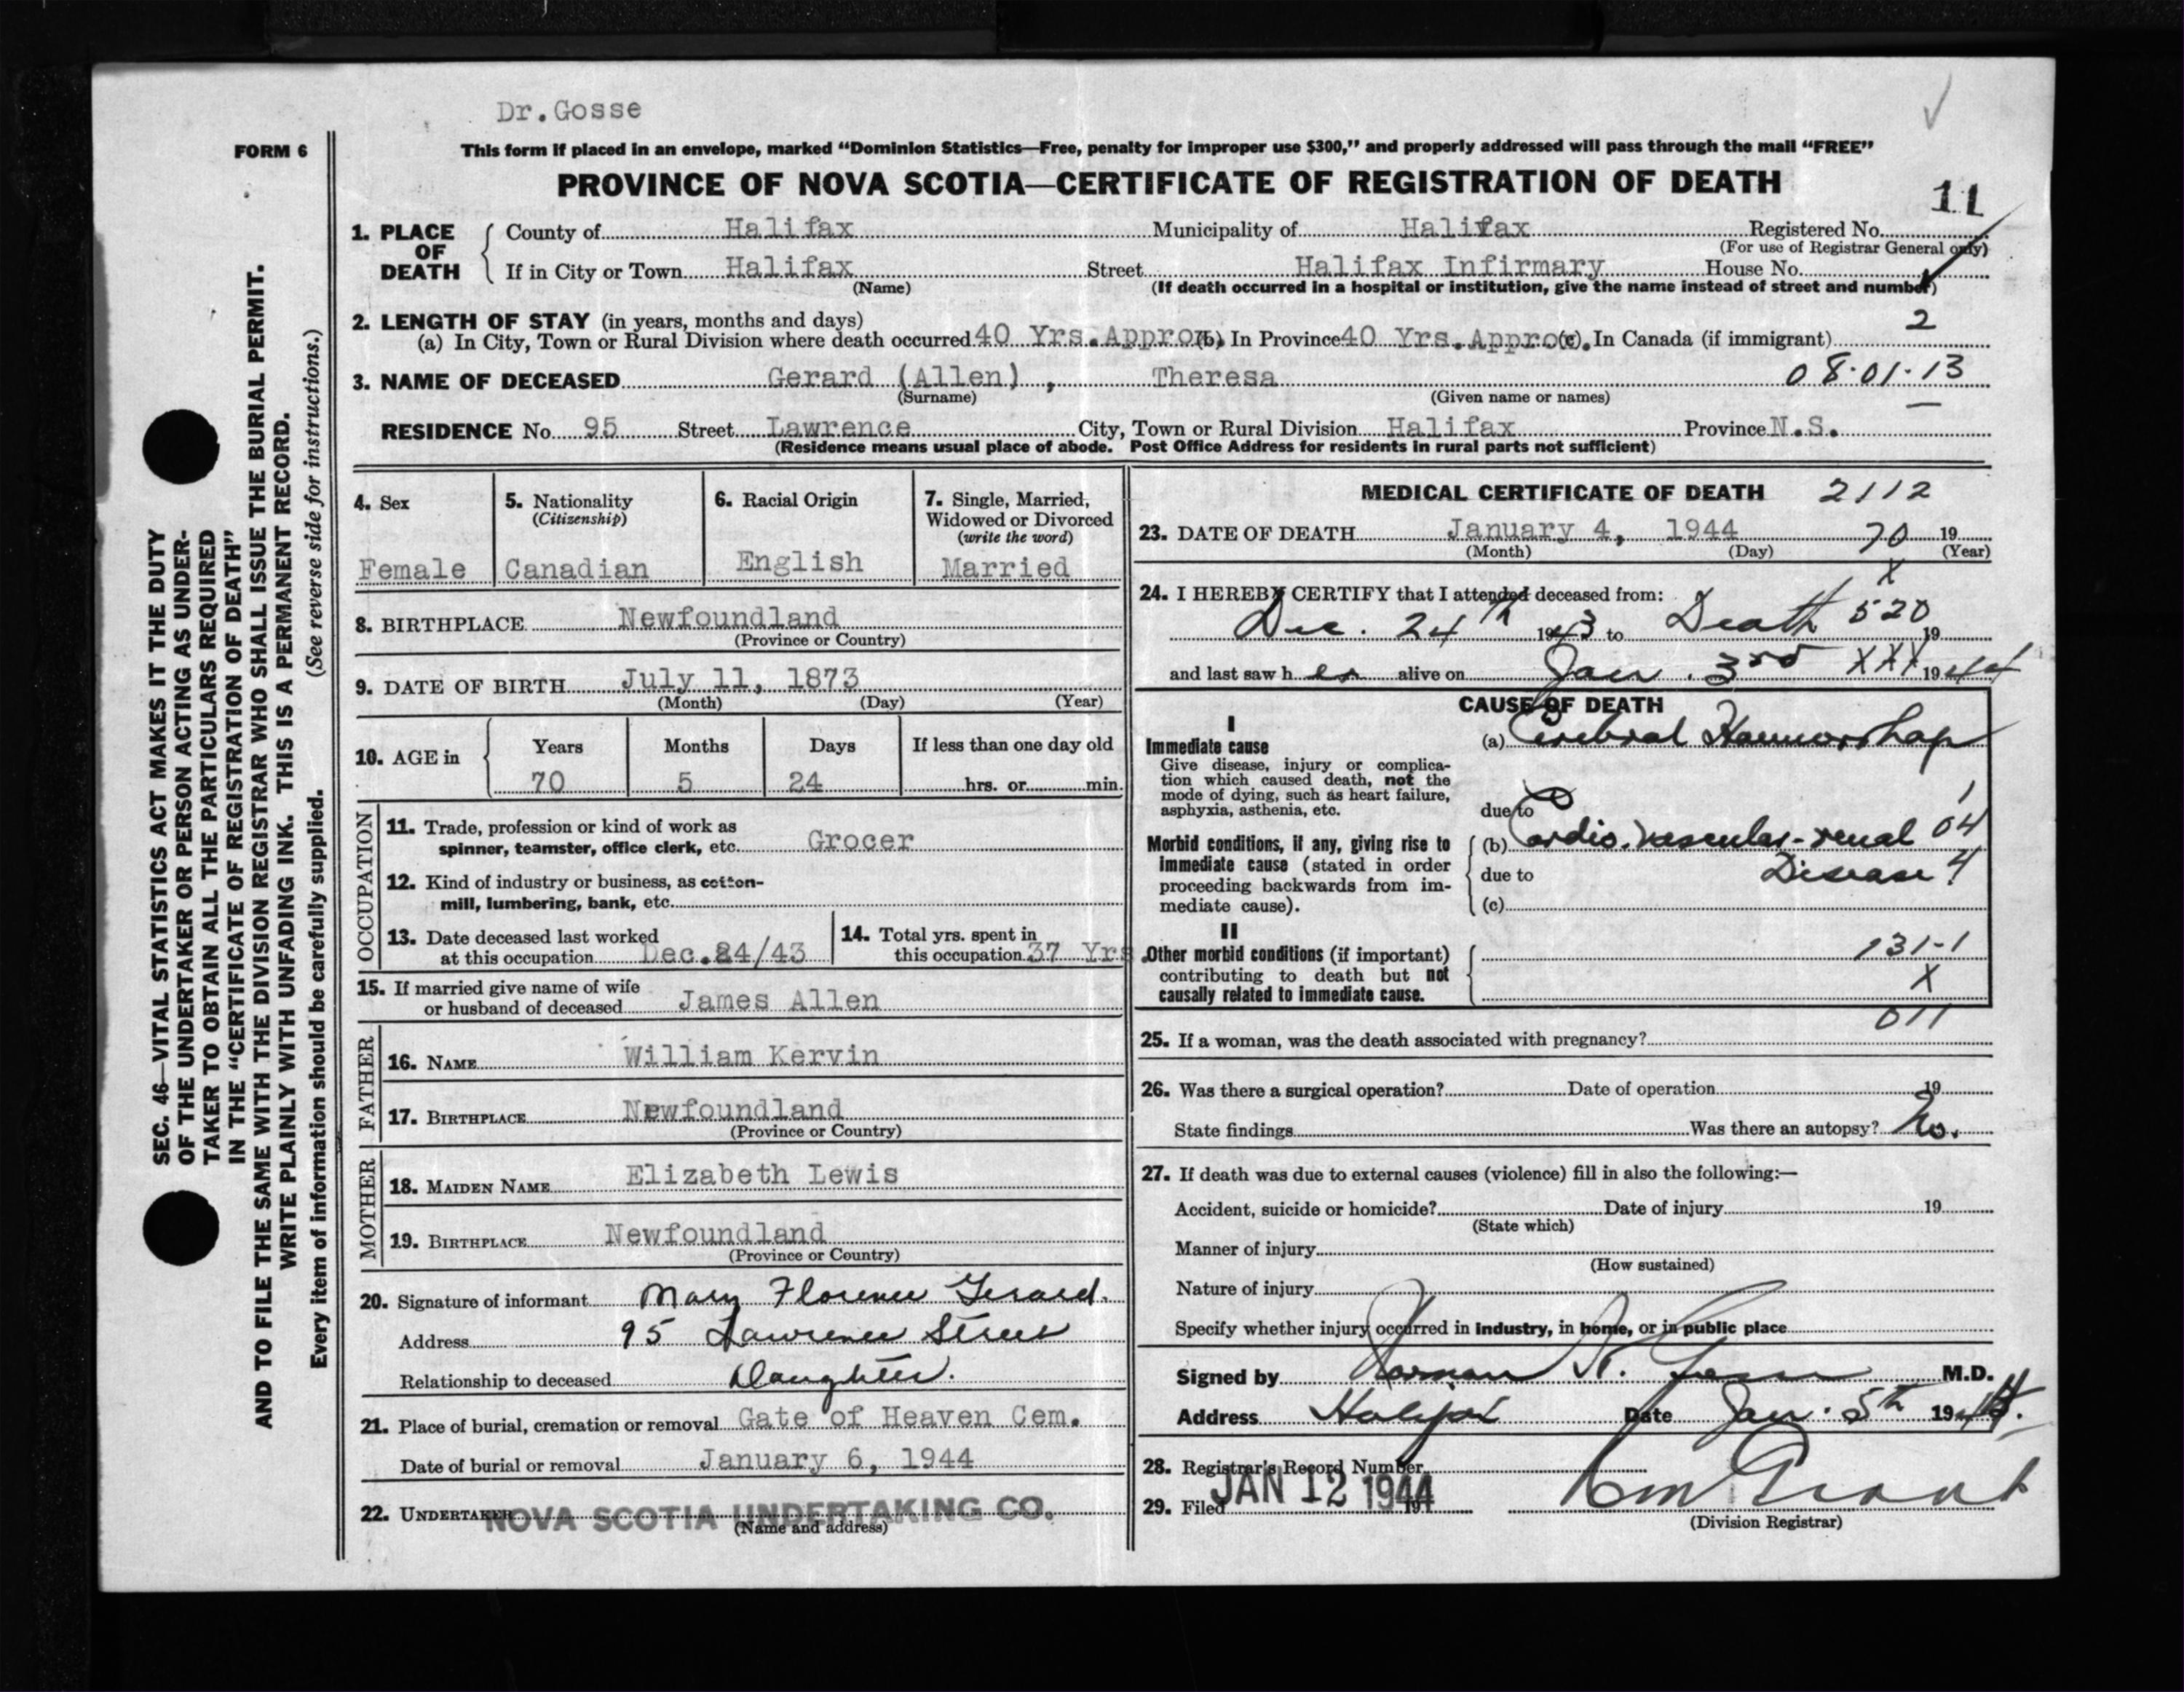 Dr. Gosse
FORM 6
This form if placed in an envelope, marked “Dominion Statistics—Free, penalty for improper use $300,” and properly addressed will pass through the mail “FREE”
PROVINCE OF NOVA SCOTIA—CERTIFICATE OF REGISTRATION OF DEATH
11
1. PLACE OF DEATH
County of Halifax Municipality of Halifax Registered No.
(For use of Registrar General only)
If in City or Town Halifax Street Halifax Infirmary House No.
(Name) (If death occurred in a hospital or institution, give the name instead of street and number)
2. LENGTH OF STAY (in years, months and days) 2
(a) In City, Town or Rural Division where death occurred 40 Yrs. Approx. (b) In Province 40 Yrs. Approx. (c) In Canada (if immigrant)
3. NAME OF DECEASED Gerard (Allen) , Theresa 08·01·13
(Surname) (Given name or names)
RESIDENCE No. 95 Street Lawrence City, Town or Rural Division Halifax Province N.S.
(Residence means usual place of abode. Post Office Address for residents in rural parts not sufficient)
SEC. 46—VITAL STATISTICS ACT MAKES IT THE DUTY
OF THE UNDERTAKER OR PERSON ACTING AS UNDER-
TAKER TO OBTAIN ALL THE PARTICULARS REQUIRED
IN THE “CERTIFICATE OF REGISTRATION OF DEATH”
AND TO FILE THE SAME WITH THE DIVISION REGISTRAR WHO SHALL ISSUE THE BURIAL PERMIT.
WRITE PLAINLY WITH UNFADING INK. THIS IS A PERMANENT RECORD.
Every item of information should be carefully supplied. (See reverse side for instructions.)
4. Sex
Female
5. Nationality
(Citizenship)
Canadian
6. Racial Origin
English
7. Single, Married,
Widowed or Divorced
(write the word)
Married
8. BIRTHPLACE Newfoundland
(Province or Country)
9. DATE OF BIRTH July 11, 1873
(Month) (Day) (Year)
10. AGE in Years Months Days If less than one day old
70 5 24 hrs. or min.
OCCUPATION
11. Trade, profession or kind of work as
spinner, teamster, office clerk, etc. Grocer
12. Kind of industry or business, as cotton-
mill, lumbering, bank, etc.
13. Date deceased last worked
at this occupation Dec.24/43
14. Total yrs. spent in
this occupation 37 Yrs.
15. If married give name of wife
or husband of deceased James Allen
FATHER
16. NAME William Kervin
17. BIRTHPLACE Newfoundland
(Province or Country)
MOTHER
18. MAIDEN NAME Elizabeth Lewis
19. BIRTHPLACE Newfoundland
(Province or Country)
20. Signature of informant Mary Florence Gerard.
Address 95 Lawrence Street
Relationship to deceased Daughter.
21. Place of burial, cremation or removal Gate of Heaven Cem.
Date of burial or removal January 6, 1944
22. UNDERTAKER NOVA SCOTIA UNDERTAKING CO.
(Name and address)
MEDICAL CERTIFICATE OF DEATH 2112
23. DATE OF DEATH January 4, 1944 70 19
(Month) (Day) (Year)
X
24. I HEREBY CERTIFY that I attended deceased from:
Dec. 24th 1943 to Death 520 19
and last saw her alive on Jan. 3rd XXX 1944
CAUSE OF DEATH
I
Immediate cause
Give disease, injury or complica-
tion which caused death, not the
mode of dying, such as heart failure,
asphyxia, asthenia, etc.
(a) Cerebral Haemorrhage
due to
1
Morbid conditions, if any, giving rise to
immediate cause (stated in order
proceeding backwards from im-
mediate cause).
(b) Cardio-vascular-renal 04
due to Disease 4
(c)
II
Other morbid conditions (if important)
contributing to death but not
causally related to immediate cause.
131-1
X
011
25. If a woman, was the death associated with pregnancy?
26. Was there a surgical operation? Date of operation 19
State findings Was there an autopsy? No.
27. If death was due to external causes (violence) fill in also the following:—
Accident, suicide or homicide? Date of injury 19
(State which)
Manner of injury
(How sustained)
Nature of injury
Specify whether injury occurred in industry, in home, or in public place
Signed by Norman H. Gosse M.D.
Address Halifax Date Jan. 5th 1944.
28. Registrar's Record Number
29. Filed JAN 12 1944 194
Grant
(Division Registrar)